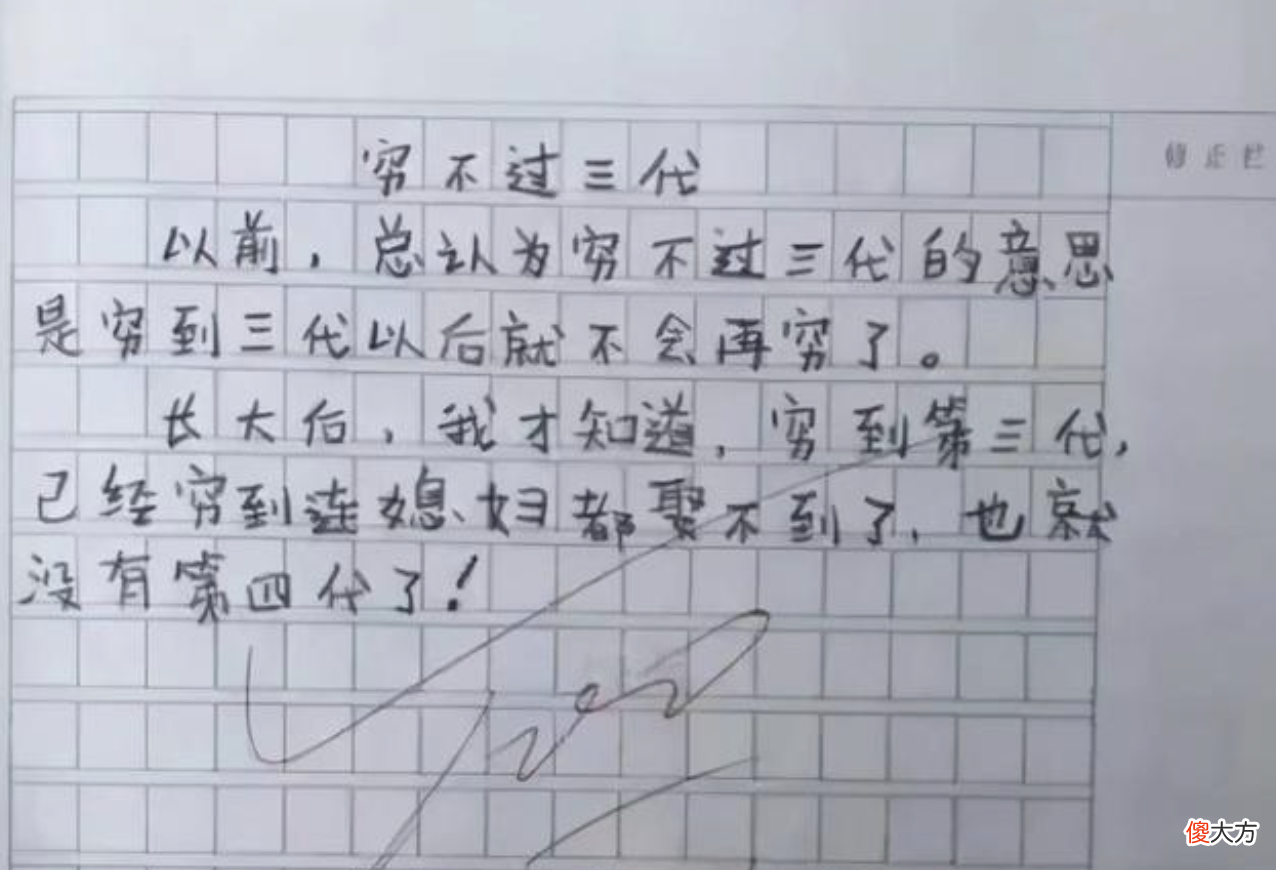 修正栏
穷不过三代
以前，总认为穷不过三代的意思
是穷到三代以后就不会再穷了。
长大后，我才知道，穷到第三代，
已经穷到连媳妇都娶不到了，也就
没有第四代了！
傻大方